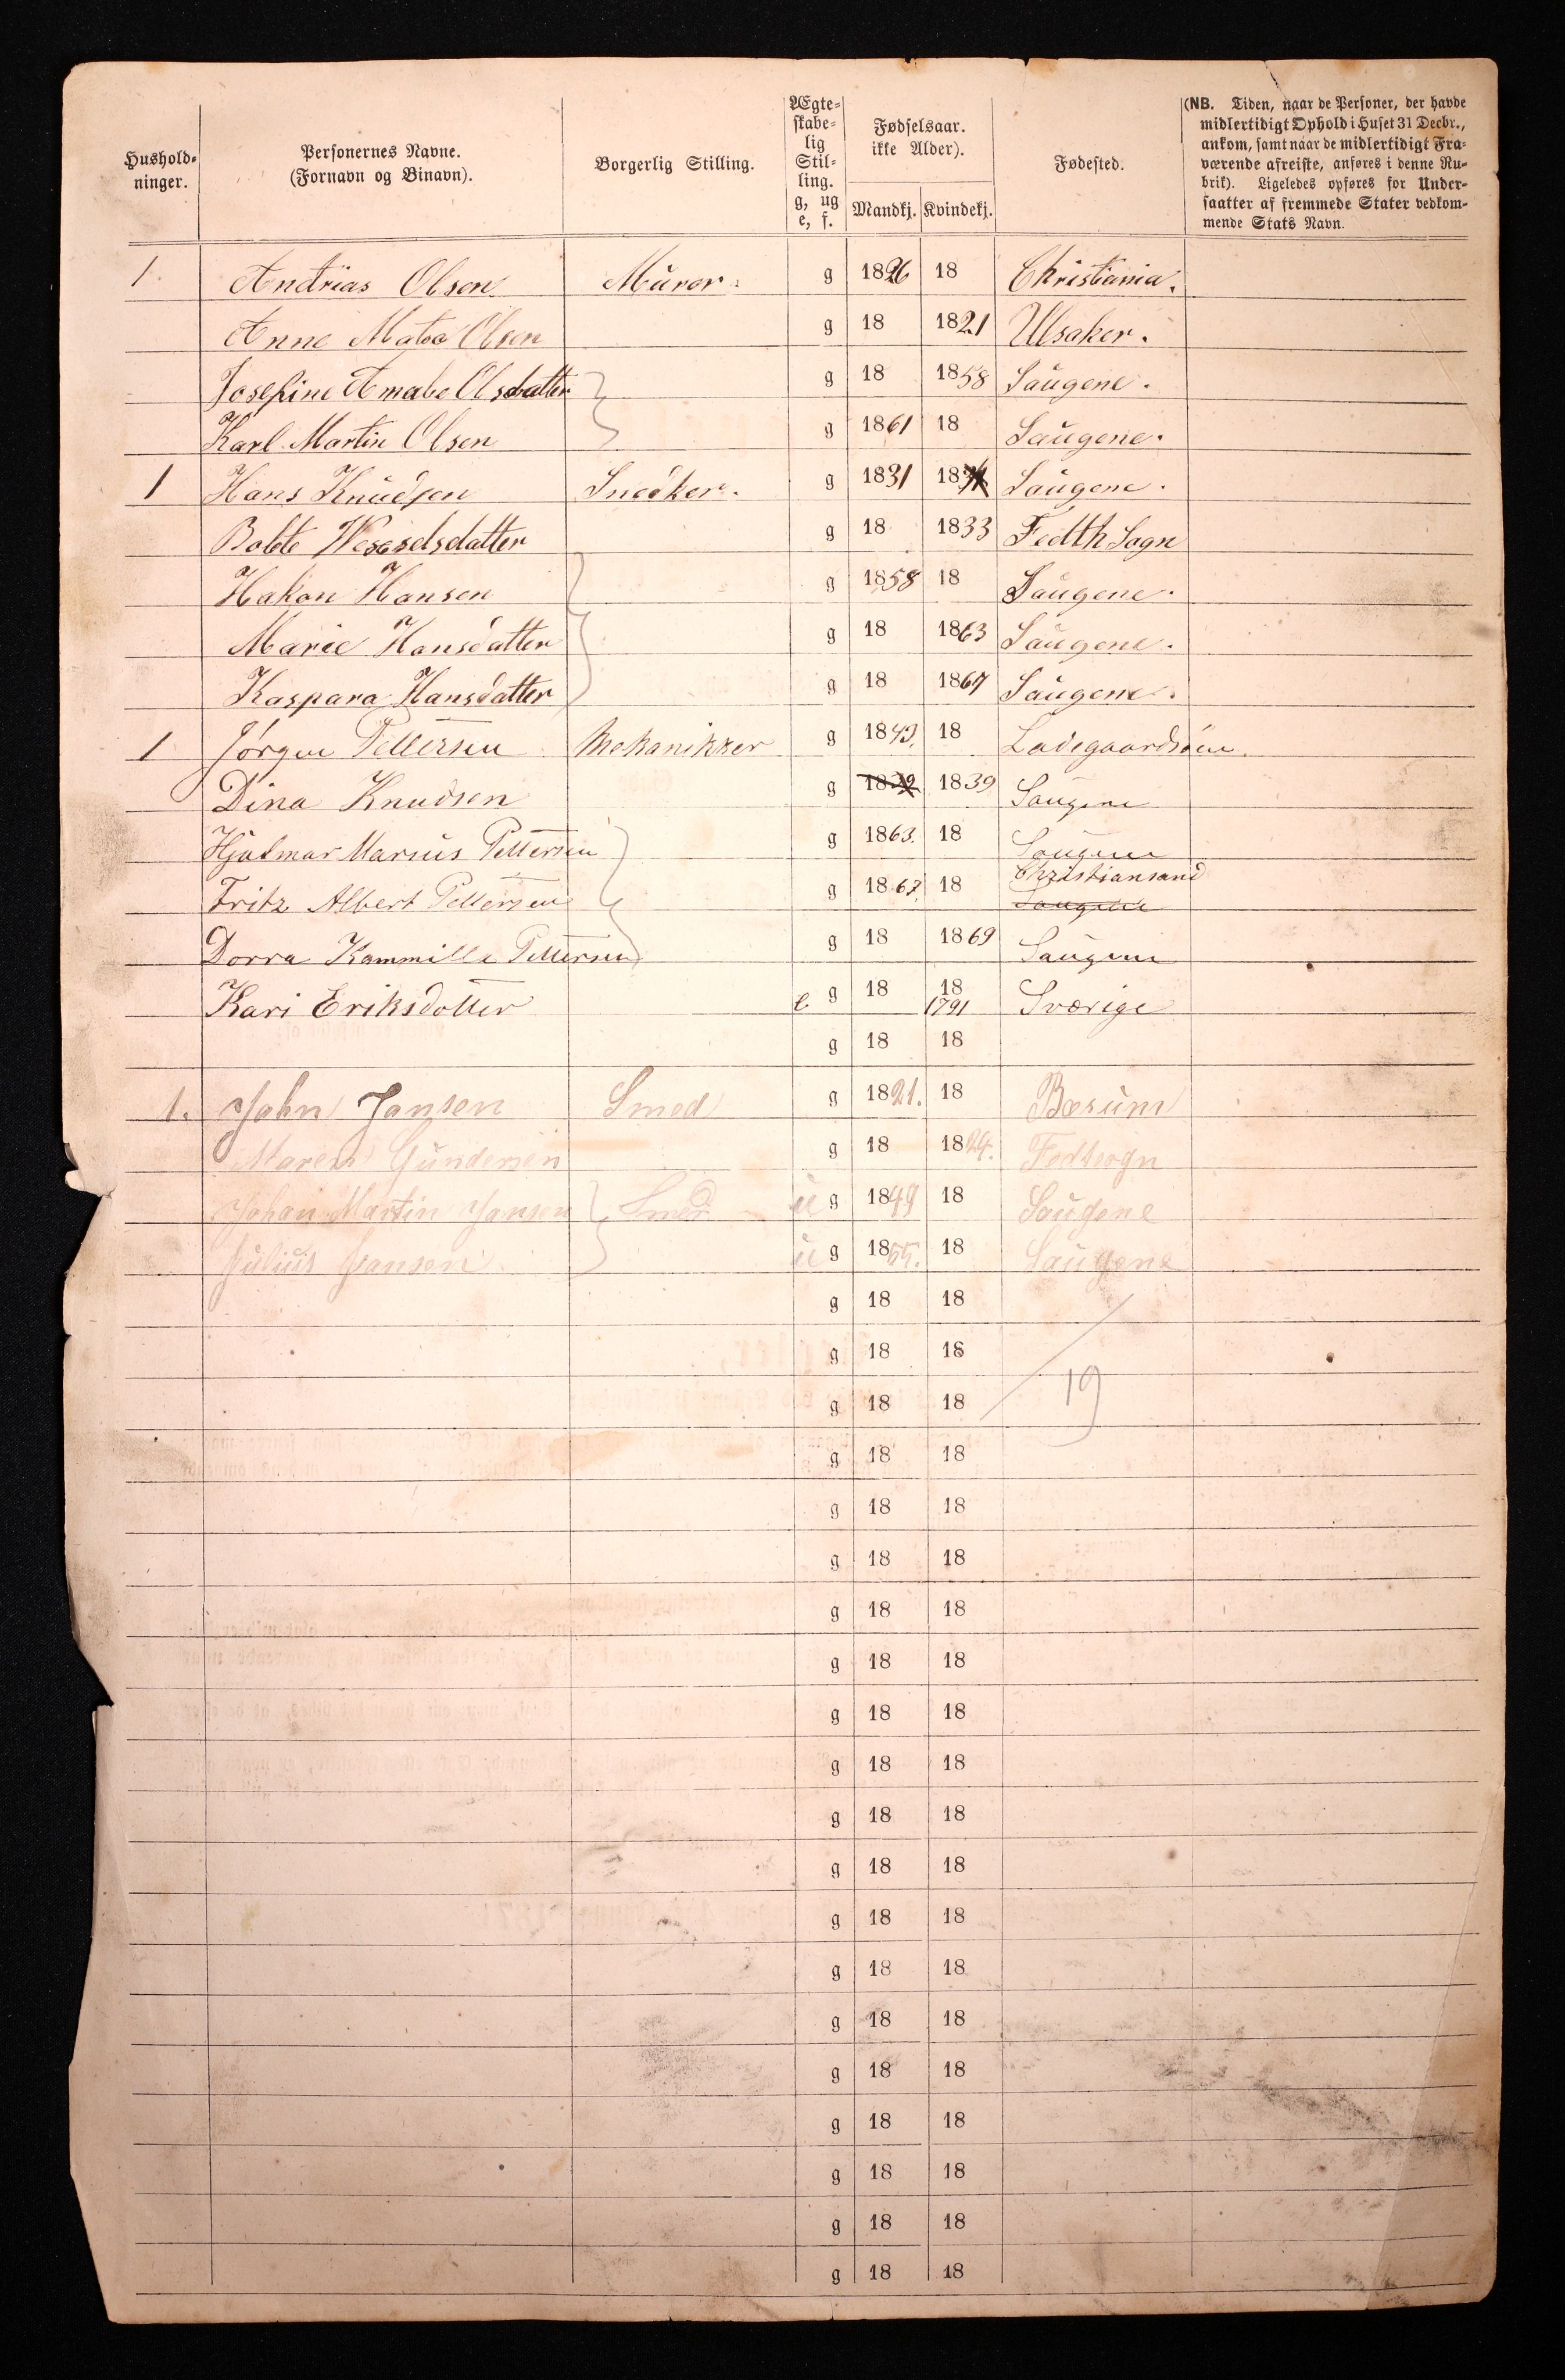 Hushold-
ninger.
Personernes Navne.
(Fornavn og Binavn).
Borgerlig Stilling.
Ægte-
skabe-
lig
Stil-
ling.
g, ug
e, f.
Fødselsaar.
ikke Alder).
Mandkj. Kvindekj.
Fødested.
(NB. Tiden, naar de Personer, der havde
midlertidigt Ophold i Huset 31 Decbr.,
ankom, samt naar de midlertidigt Fra-
værende afreiste, anføres i denne Ru-
brik). Ligeledes opføres for Under-
saatter af fremmede Stater vedkom-
mende Stats Navn.
1. Andrias Olsen Mürer. g 1826 18 Christiania.
Anne Olsen g 18 1821 Ulsaker.
Josefine Amabe Olsdatter g 18 1858 Saugene.
Karl Martin Olsen g 1861 18 Saugene.
1 Hans Knudsen Snedker. g 1831 18 Saugene.
Bolete Wesselsdatter g 18 1833 Fedth Sogn
Hakon Hansen g 1858 18 Saugene.
Marie Hansdatter g 18 1863 Saugene.
Kaspara Hansdatter g 18 1867 Saugene.
1 Jörgen Pettersen Mekanikker g 1843. 18 Ladegaardsöen.
Dina Knudsen g 1839 1839 Saugene
Hjalmar Marius Pettersen g 1863. 18 Saugene
Fritz Albert Pettersen g 1867. 18 Christiansand
Saugene
Dorra Kammilla Pettersen g 18 1869 Saugene
Kari Eriksdotter e g 18 18
1791 Sværige
g 18 18
1. John Jansen Smed g 1821. 18 Bærüm
Maren Gündersen g 18 1824. Fedtsogn
Johan Martin Jansen Smed ü g 1849 18 Saugene
Julius Jansen ü g 1855. 18 Saugene
g 18 18
g 18 18
g 18 18 19
g 18 18
g 18 18
g 18 18
g 18 18
g 18 18
g 18 18
g 18 18
g 18 18
g 18 18
g 18 18
g 18 18
g 18 18
g 18 18
g 18 18
g 18 18
g 18 18
g 18 18